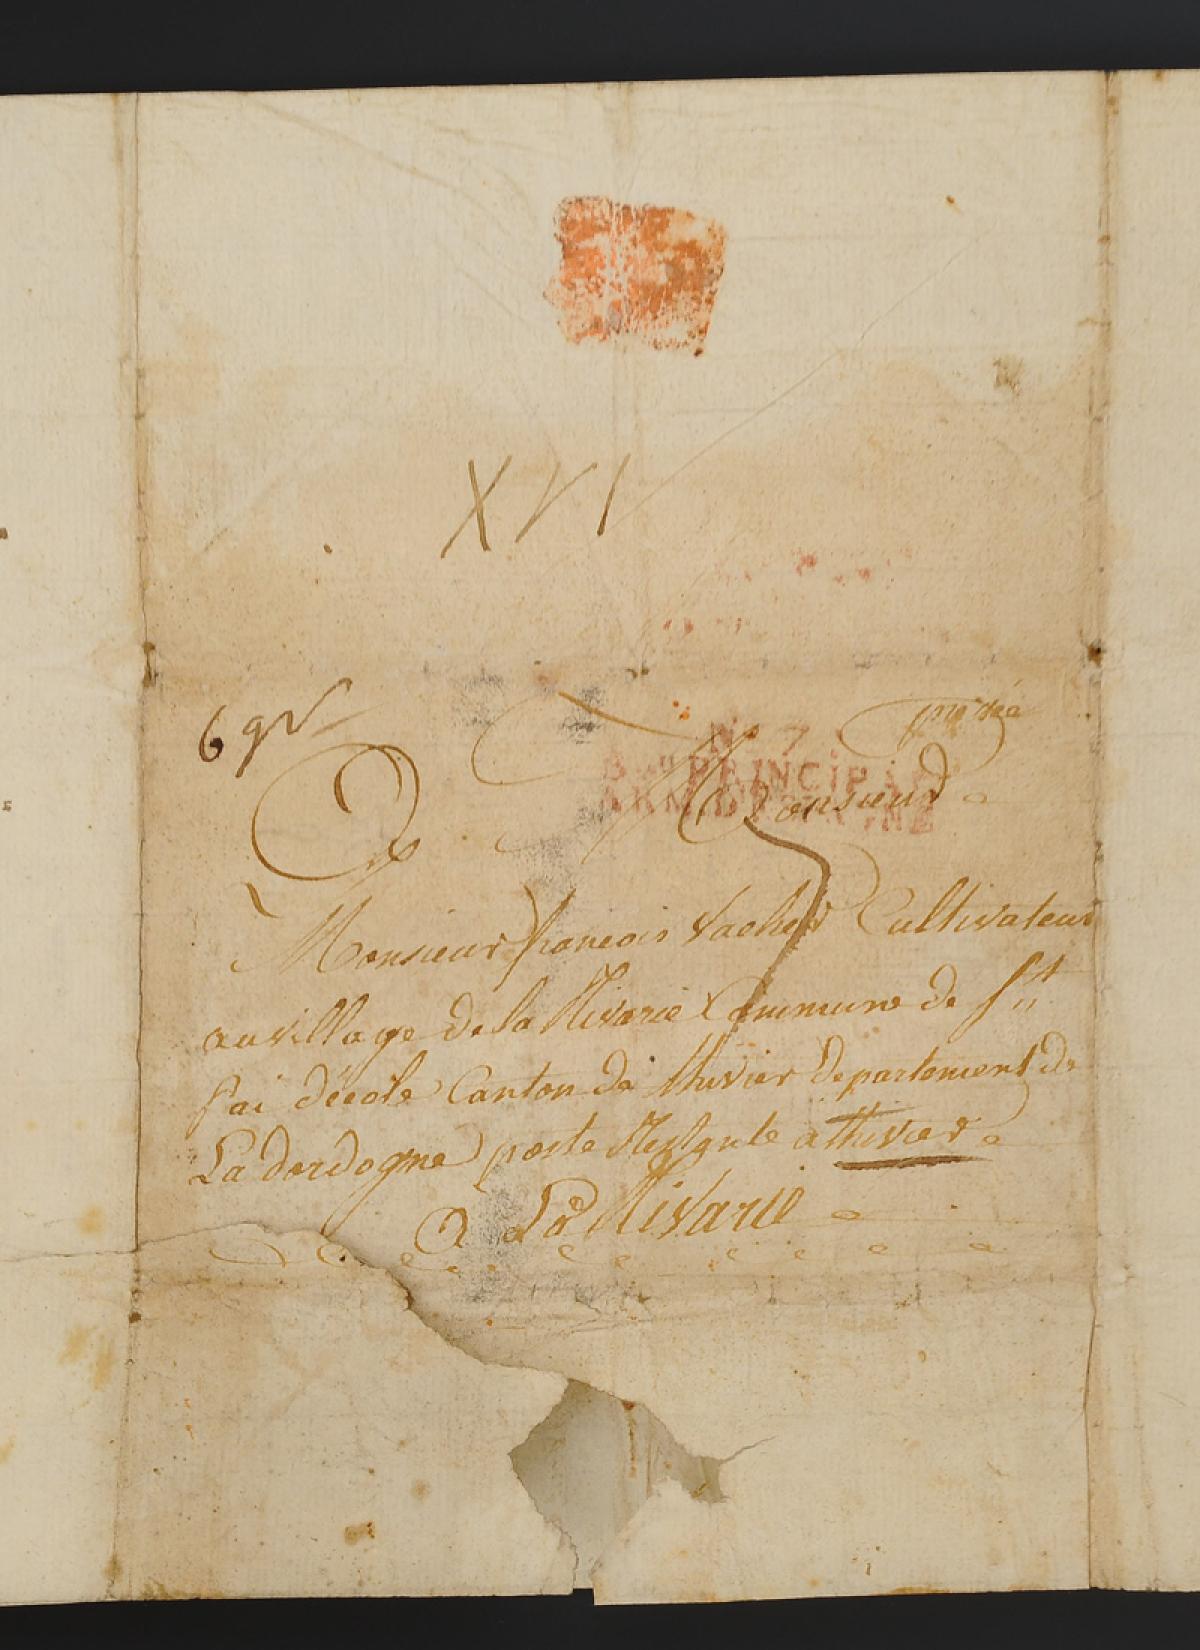 XVI
6 gr
pressée
N° 7
Bau PRINCIPAL
ARM. D'ESPAGNE
A Monsieur
Monsieur francois Vacher Cultivateur
au village de la Rivarie Commune de St
fai décole Canton de thivier departement de
La dordogne poste Restante a thivier
a La Rivarie